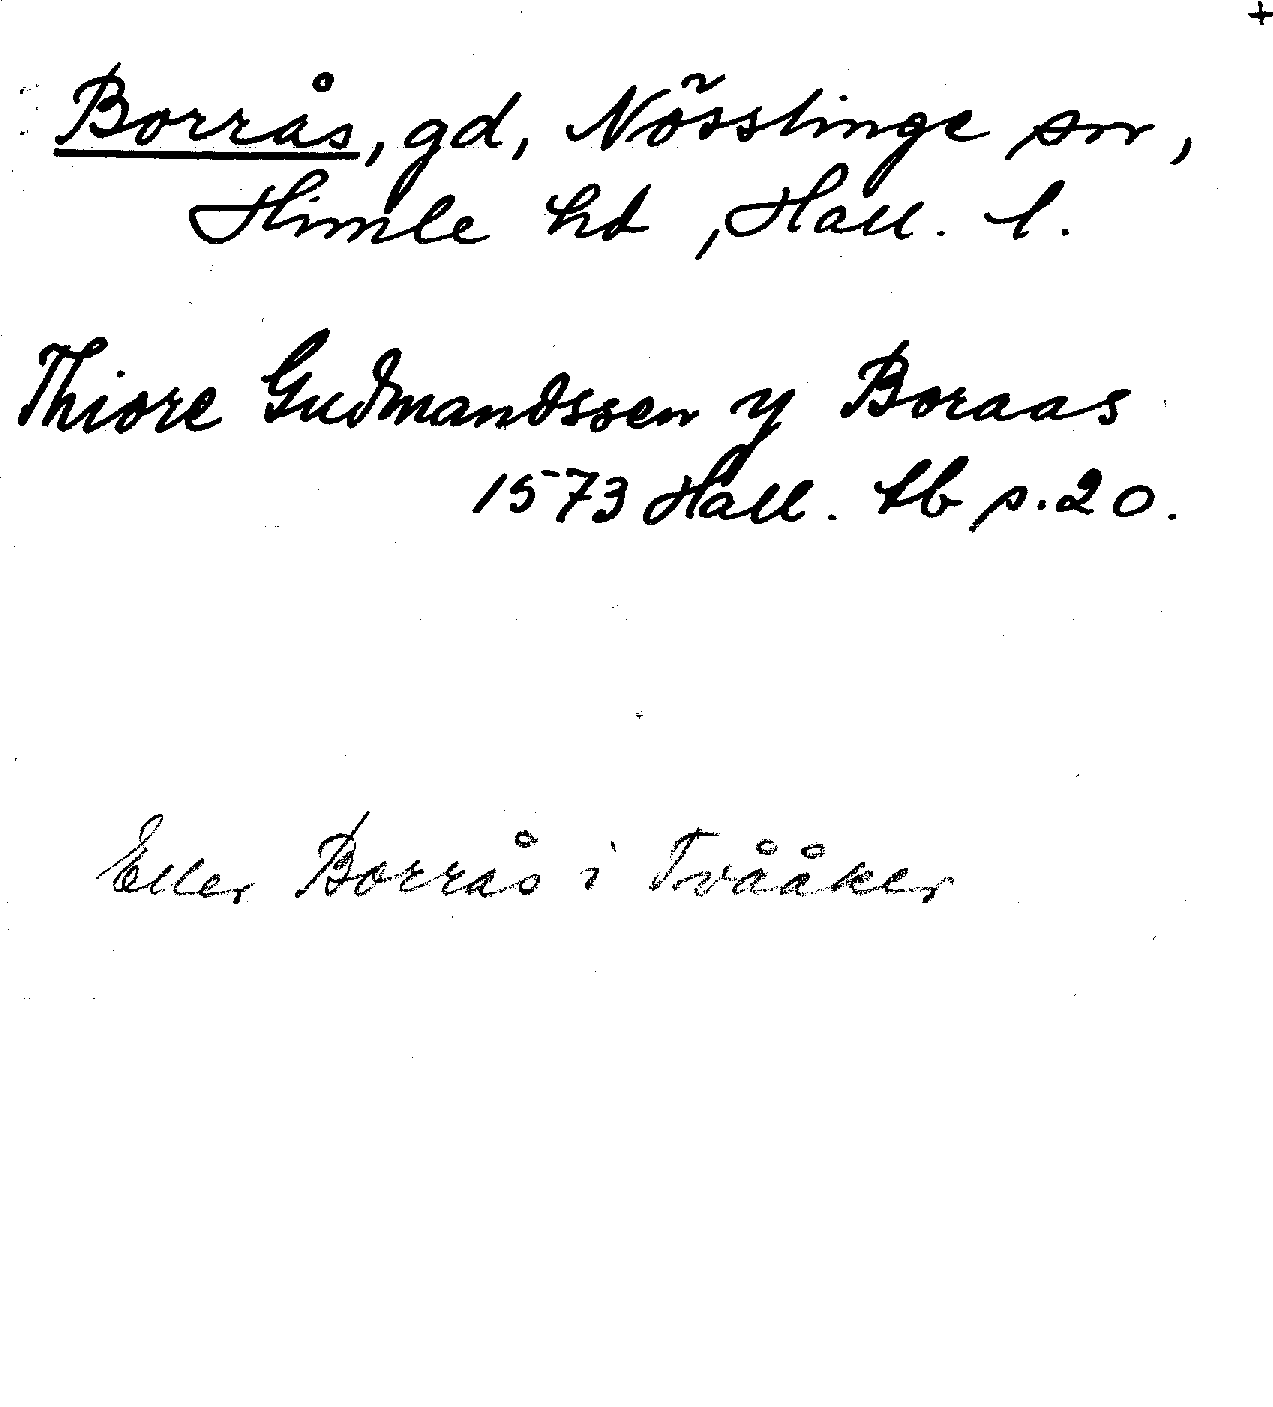 +
Borrås, gd, Nösslinge sn,
Himle hd, Hall. l.
Thiore Gudmandssen y Boraas
1573 Hall. tb p. 20.
Eller Borrås i Tvååker